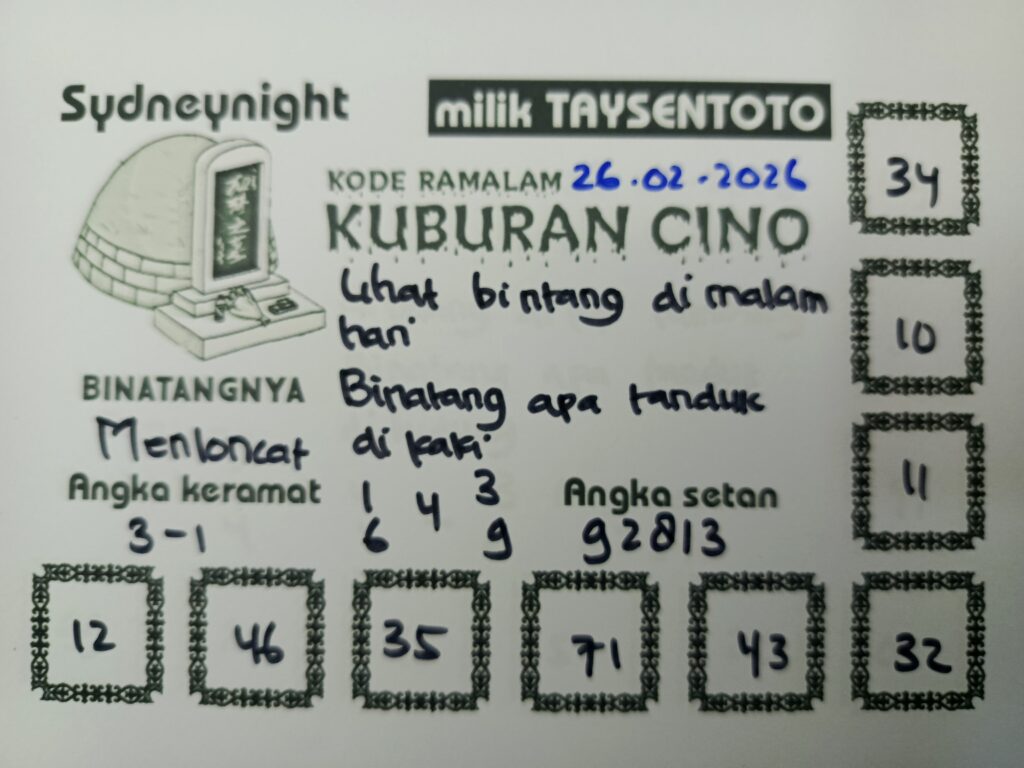 Sydneynight
milik TAYSENTOTO
KODE RAMALAM 26.02.2026
KUBURAN CINO
Lihat bintang di malam
hari
BINATANGNYA
Menloncat
Binatang apa tanduk
di kaki
Angka keramat
3-1
1 4 3
6 9
Angka setan
92813
34
10
11
12 46 35 71 43 32